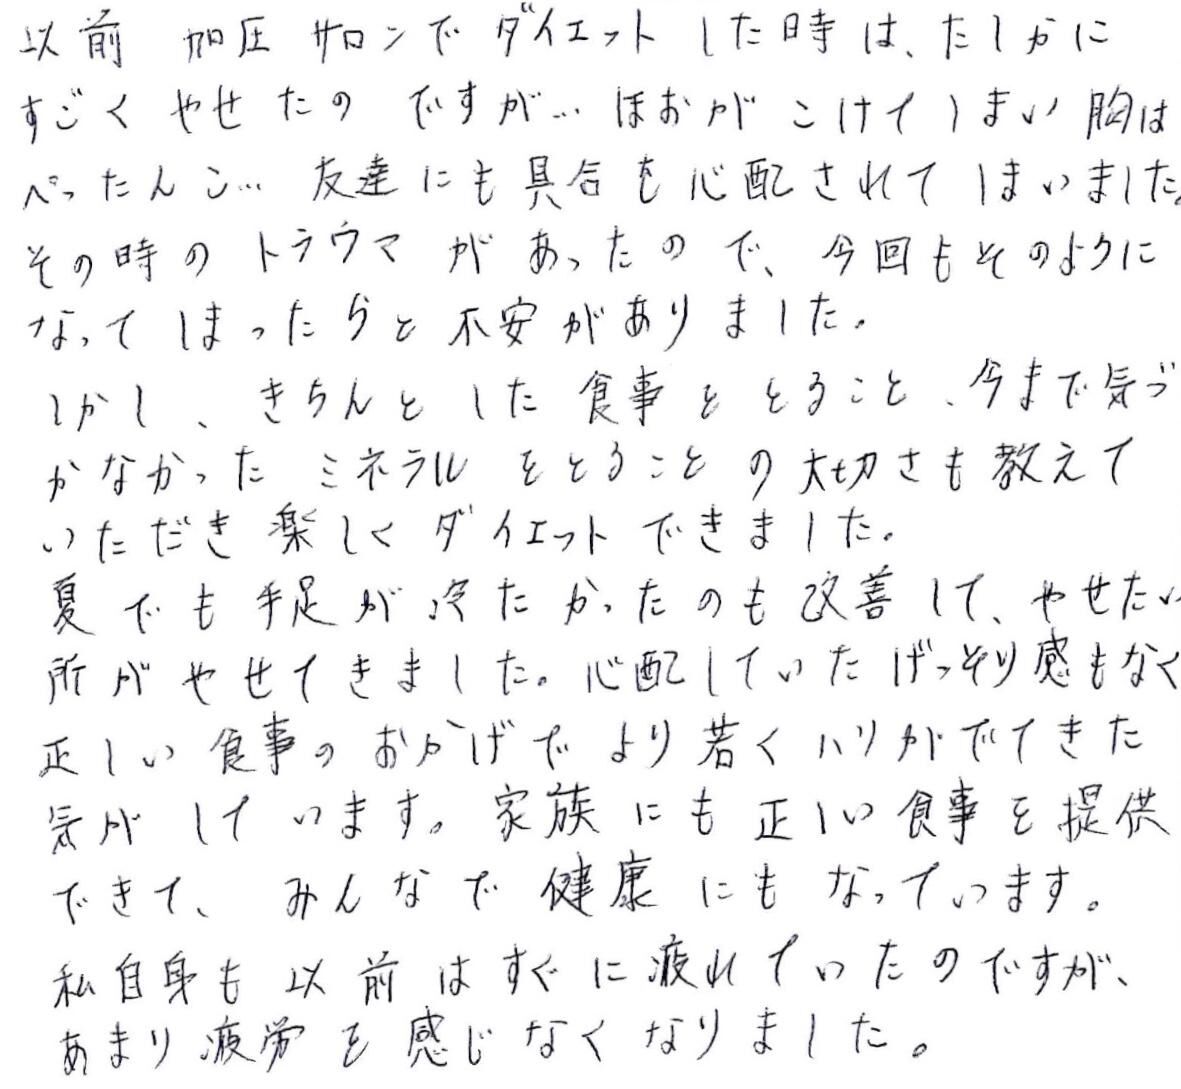 以前 加圧サロンでダイエットした時は、たしかに
すごくやせたのですが…ほおがこけてしまい胸は
ぺったんこ…友達にも具合を心配されてしまいました。
その時のトラウマがあったので、今回もそのように
なってしまったらと不安がありました。
しかし、きちんとした食事をとること、今まで気づ
かなかったミネラルをとることの大切さも教えて
いただき楽しくダイエットできました。
夏でも手足が冷たかったのも改善して、やせたい
所がやせてきました。心配していたげっそり感もなく
正しい食事のおかげでより若くハリがでてきた
気がしています。家族にも正しい食事を提供
できて、みんなで健康にもなっています。
私自身も以前はすぐに疲れていたのですが、
あまり疲労を感じなくなりました。